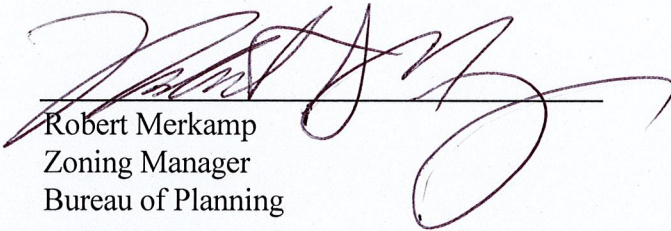 Robert Merkamp
Zoning Manager
Bureau of Planning